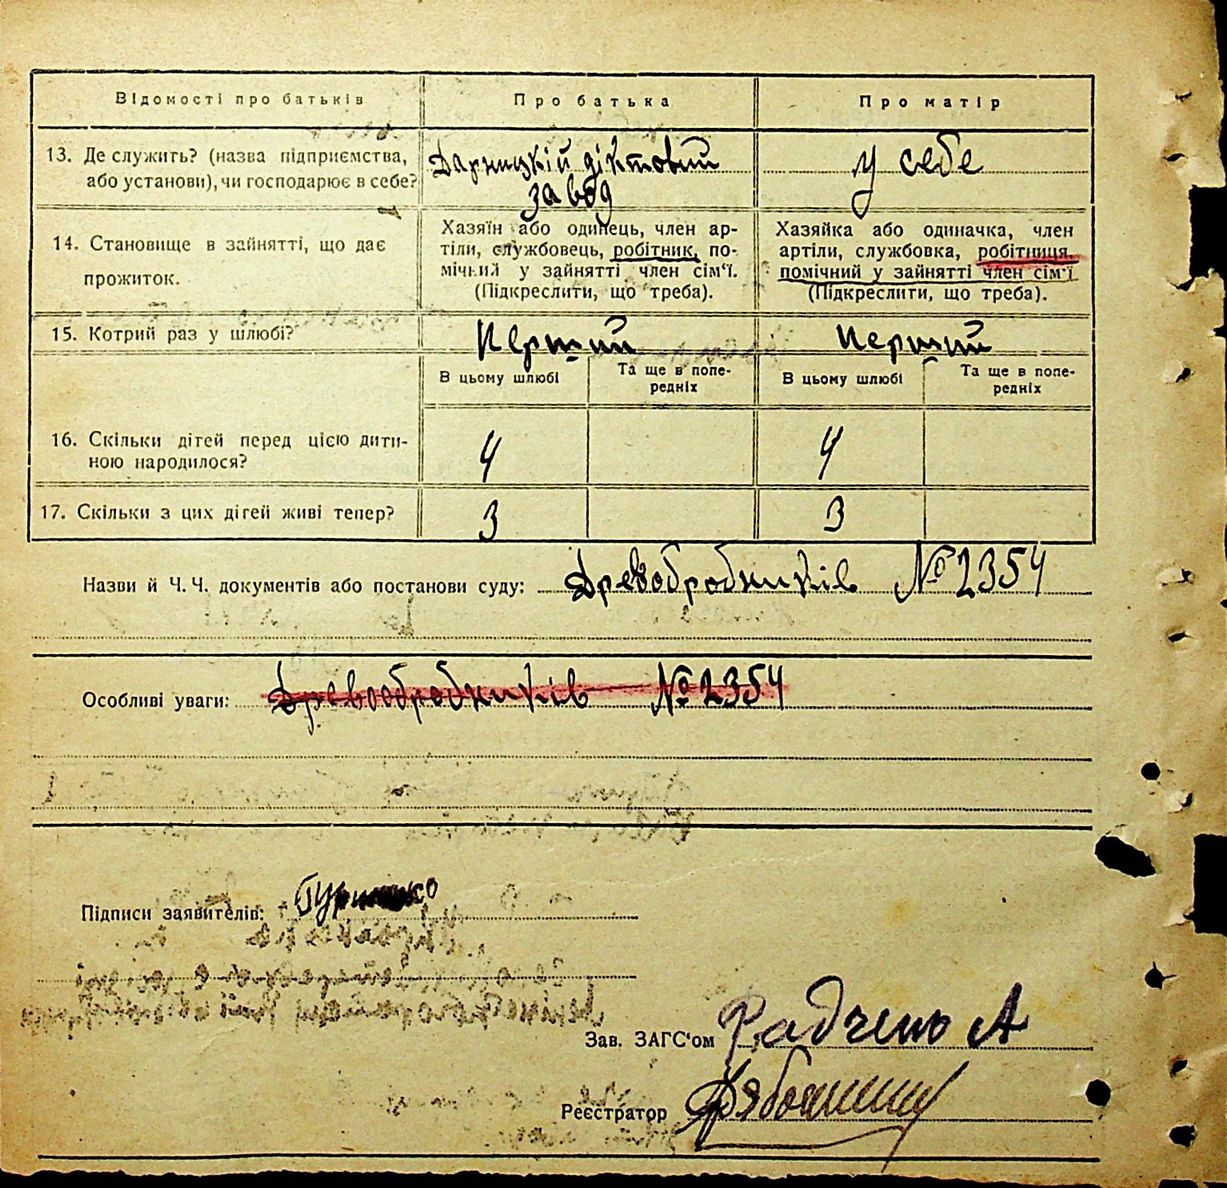 Відомості про батьків
Про батька
Про матір
13. Де служить? (назва підприємства,
або установи), чи господарює в себе?
Дарницкій діктовий
завод
у себе
14. Становище в зайнятті, що дає
прожиток.
Хазяїн або одинець, член ар-
тіли, службовець, робітник, по-
мічний у зайнятті член сім'ї.
(Підкреслити, що треба).
Хазяйка або одиначка, член
артіли, службовка, робітниця.
помічний у зайнятті член сім'ї
(Підкреслити, що треба).
15. Котрий раз у шлюбі?
Перший
Перший
В цьому шлюбі
Та ще в попе-
редніх
В цьому шлюбі
Та ще в попе-
редніх
16. Скільки дітей перед цією дити-
ною народилося?
4
4
17. Скільки з цих дітей живі тепер?
3
3
Назви й Ч. Ч. документів або постанови суду: Древобробників № 2354
Особливі уваги: Древообробників № 2354
Підписи заявителів:
Зав. ЗАГС'ом Радченко А
Реєстратор